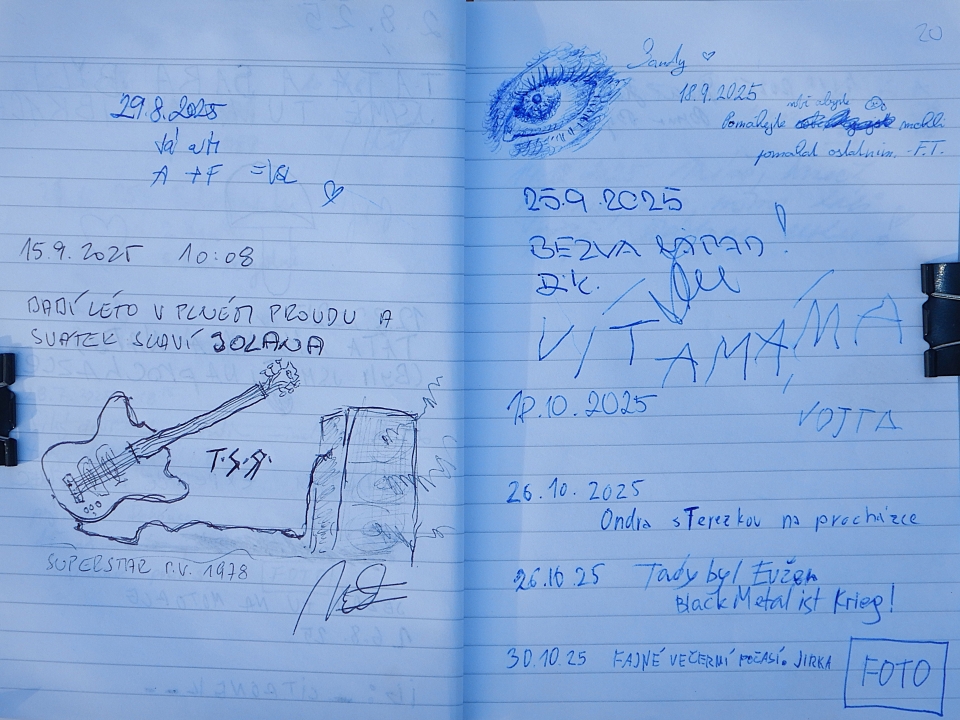 29.8.2025
A + F = VSL
15.9.2025 10:08
BABÍ LÉTO V PLNÉM PROUDU A
SVATEK SLAVÍ JOLANA
T.S.A.
SUPERSTAR r.v. 1978
20
Sandy
18.9.2025
Pomáhejte mohli
pomáhat ostatním. -F.T.
25.9.2025
BEZVA
Dík.
VÍT A MÁMA,
VOJTA
10.2025
26.10.2025
Ondra s Terezkou na procházce
26.10 25 Tady byl Evžen
Black Metal ist Krieg!
30.10.25 FAJNÉ VEČERNÍ POČASÍ. JIRKA
FOTO